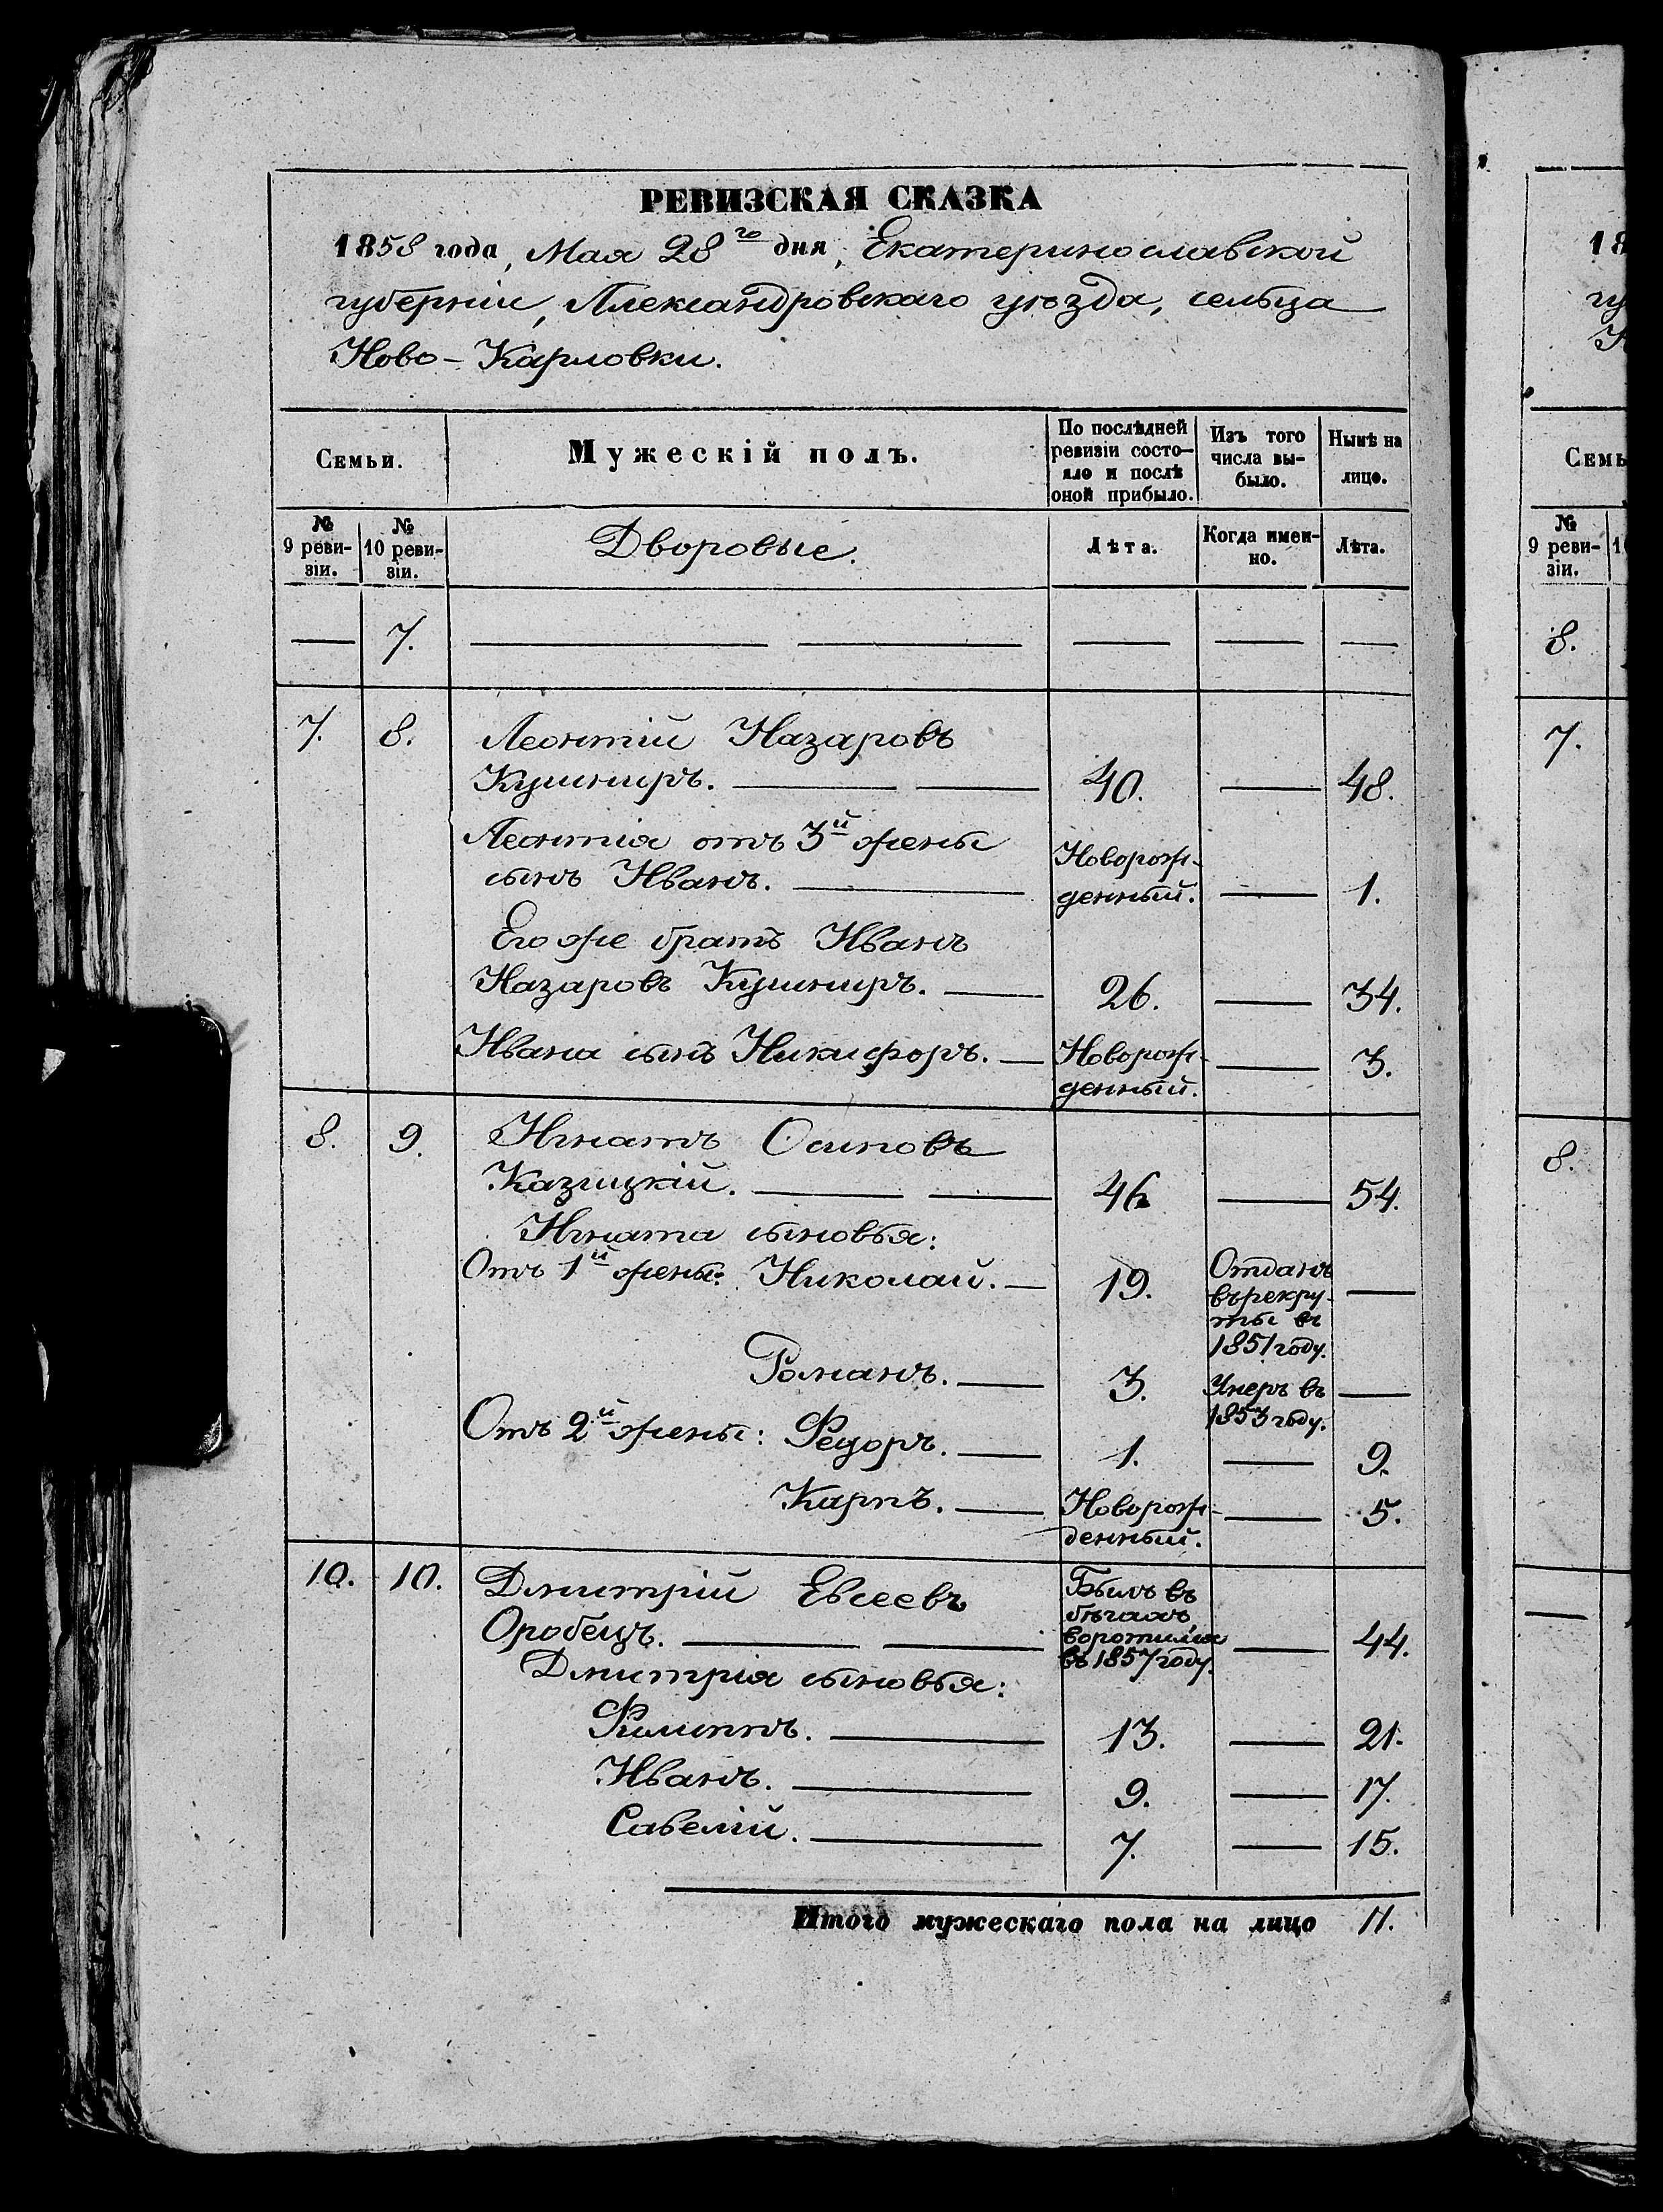 РЕВИЗСКАЯ СКАЗКА
1858 года, Мая 28го дня, Екатеринославской
губерніи, Александровскаго уѣзда, сельца
Ново-Карловки.
Семьи.
Мужескій полъ.
По послѣдней ревизіи состо-
яло и послѣ оной прибыло.
Изъ того числа вы-
было.
Нынѣ на лицо.
№ 9 реви-
зіи.
№ 10 реви-
зіи.
Дворовые.
Лѣта.
Когда имен-
но.
Лѣта.
— 7. — — — — —
7. 8. Леонтій Назаровъ
Кушниръ. — — 40. — 48.
Леонтія отъ 3й жены
сынъ Иванъ. — Новорож-
денный. — 1.
Его же братъ Иванъ
Назаровъ Кушниръ. — 26. — 34.
Ивана сынъ Никифоръ. — Новорож-
денный. — 3.
8. 9. Игнатъ Осиповъ
Казицкій. — — 46 — 54.
Игната сыновья:
Отъ 1й жены: Николай. — 19. Отданъ
въ рекру-
ты въ
1851 году. —
Романъ. — 3. Умеръ въ
1853 году. —
Отъ 2й жены: Федоръ. — 1. — 9.
Карпъ. — Новорож-
денный. — 5.
10. 10. Дмитрій Евсеевъ
Оробецъ. — — Былъ въ
бѣгахъ
воротился
въ 1857 году. — 44.
Дмитрія сыновья:
Филиппъ. — 13. — 21.
Иванъ. — 9. — 17.
Савелій. — 7. — 15.
Итого мужескаго пола на лицо 11.
18
гу
Н
Семь
№
9 реви-
зіи.
1
8.
7.
8.
—